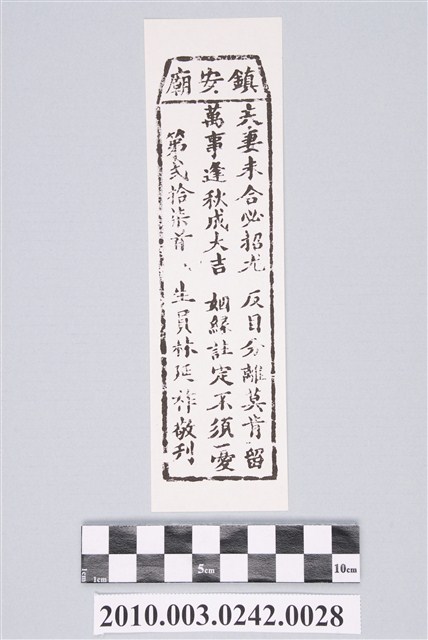 鎮安廟
夫妻未合必招尤　反目分離莫肯留
萬事逢秋成大吉　姻緣註定不須憂
第弍拾柒首　生員林延祚敬刊
1cm
1cm
5cm
10cm
2010.003.0242.0028